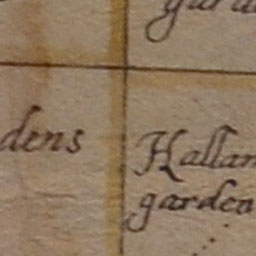 gard
dens
Hallan
garden